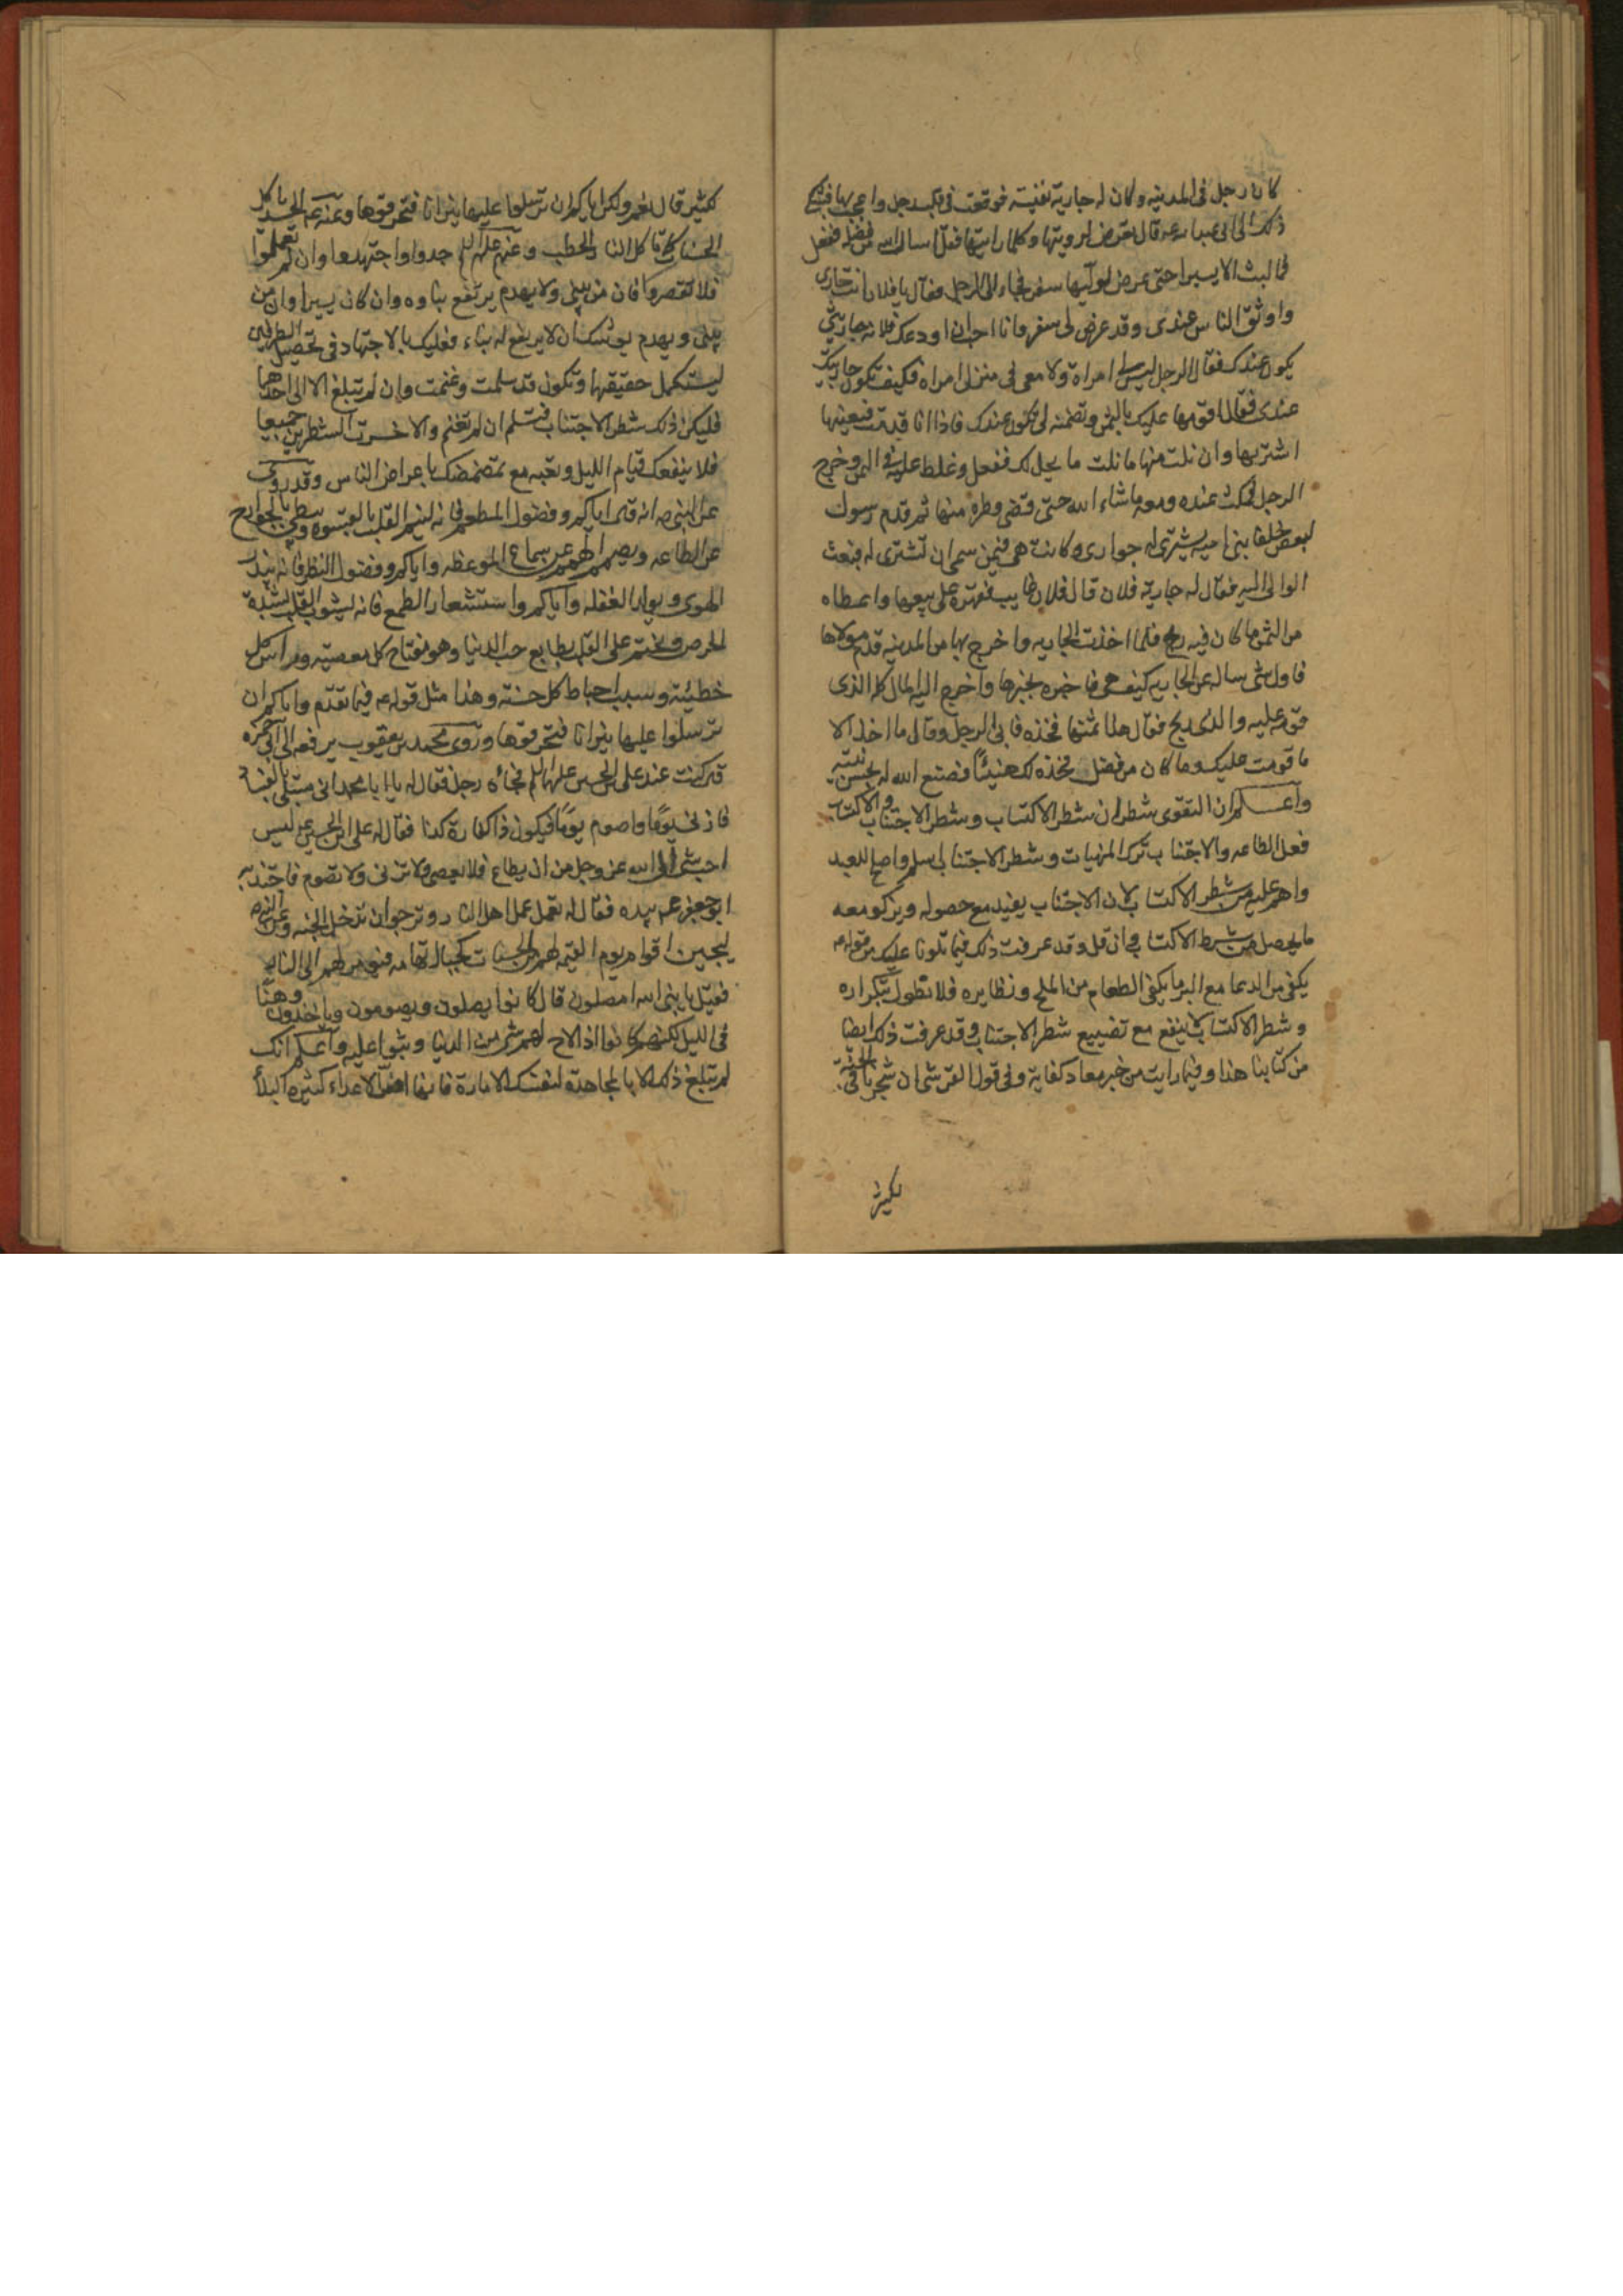 كان رجل في المدينه وكان له جارية نفيسة فوقعت في قلب رجل واعجب بها فشكى
ذلك الى ابي عبد الله عم قال تعرض لرويتها وكلما رايتها فقل اسال الله من فضله ففعل
فما لبث الا يسيرا حتى عرض لوليها سفر فجاء الى الرجل فقال يا فلان انت جارى
واوثق الناس عندى وقد عرض لى سفر وانا احب ان اودعك فلانه جاريتى
يكون عندك فقال الرجل ليس لى امراة ولا معى في منزلى امراه فكيف تكون جاريتك
عندى فقال اقومها عليك بالثمن وتضمنه لى تكون عندك فاذا انا قدمت فبعينها
اشتريها وان نلت منها ما نلت ما يحل لك ففعل وغلظ عليه في الثمن وخرج
الرجل فمكث عنده ومعه ما شاء الله حتى قضى وطره منها ثم قدم رسول
لبعض خلفا بنى اميه يشترى له جوارى وكانت هى فيمن سمى ان تشترى له فبعث
الوالى اليه فقال له جارية فلان قال فلان غايب فقهره على بيعها واعطاه
من الثمن ما كان فيه ربح فلما اخذت الجاريه واخرج بها من المدينه قدم مولاها
فاول شى ساله عن الجاريه كيف هى فاخبره بخبرها واخرج اليه المال كله الذى
قومه عليه والذى ربح فقال هذا ثمنها فخذه فابى الرجل وقال ما اخذ الا
ما قومت عليك وما كان من فضل فخذه لك هنيئا فصنع الله له بحسن نيته
واعلم ان التقوى شطران شطر الاكتساب وشطر الاجتناب والاكتساب
فعل الطاعه والاجتناب ترك المنهيات وشطر الاجتناب اسلم واصلح للعبد
واهم عليه من شطر الاكتساب لان الاجتناب يفيد مع حصوله ويزكو معه
ما يحصل من شطر الاكتساب وان قل وقد عرفت ذلك فيما تلونا عليك من قوله عم
يكفى من الدعا مع البر ما يكفى الطعام من الملح ونظايره فلا نطول بتكراره
وشطر الاكتساب لا ينفع مع تضييع شطر الاجتناب وقد عرفت ذلك ايضا
من كتابنا هذا وفيما رايت من خبر معاد كفاية وفي قول القرشى ان شجرنا في الجنة
لكثير
كثير قال نعم ولكن اياكم ان ترسلوا عليها نيرانا فتحرقوها وعنه عم الحسد ياكل
الحسنات كما تاكل النار الحطب وعنهم عليهم السلم جدوا واجتهدوا وان لم تعملوا
فلا تعصوا فان من يبنى ولا يهدم يرتفع بناوه وان كان يسيرا وان من
يبنى ويهدم يوشك ان لا يرتفع له بناء فعليك بالاجتهاد في تحصيل الطرفين
ليستكمل حقيقتها وتكون قد سلمت وغنمت وان لم تبلغ الا الى احدهما
فليكن ذلك شطر الاجتناب فتسلم ان لم تغنم والا خسرت الشطرين جميعا
فلا ينفعك قيام الليل وتعبه مع تمضمضك باعراض الناس وقد روى
عن النبى ص انه قال اياكم وفضول المطعم فانه يسم القلب بالقسوه ويبطى بالجوارح
عن الطاعه ويصم الهمم عن سماع الموعظه واياكم وفضول النظر فانه يبذر
الهوى ويولد الغفله واياكم واستشعار الطمع فانه يشوب القلب بشدة
الحرص ويختم على القلب بطابع حب الدنيا وهو مفتاح كل معصيته وراس كل
خطيئته وسبب احباط كل حسنه وهذا مثل قوله عم فيما تقدم واياكم ان
ترسلوا عليها نيرانا فتحرقوها وروى محمد بن يعقوب يرفعه الى ابى حمزه
قال كنت عند على بن الحسين عليهما السلم فجاءه رجل فقال له يا ابا محمد انى مبتلى بالنساء
فازنى يوما واصوم يوما فيكون ذا كفارة لذا فقال له على ابن الحسين عم ليس
احب شى الى الله عز وجل من ان يطاع فلا يعصى فلا تزنى ولا تصوم فاجتذبه
ابو جعفر عم بيده فقال له تعمل عمل اهل النار وترجو ان تدخل الجنه وعن النبى ص
ليجيئن اقوام يوم القيمه لهم من الحسنات كجبال تهامه فيومر بهم الى النار
فقيل يا نبى الله امصلون قال كانوا يصلون ويصومون وياخذون وهنا
في الليل لكنهم كانوا اذا لاح لهم شى من الدنيا وثبوا عليه واعلم انك
لم تبلغ ذلك الا بالمجاهدة لنفسك الامارة فانها اضر الاعداء كثيرة البلا